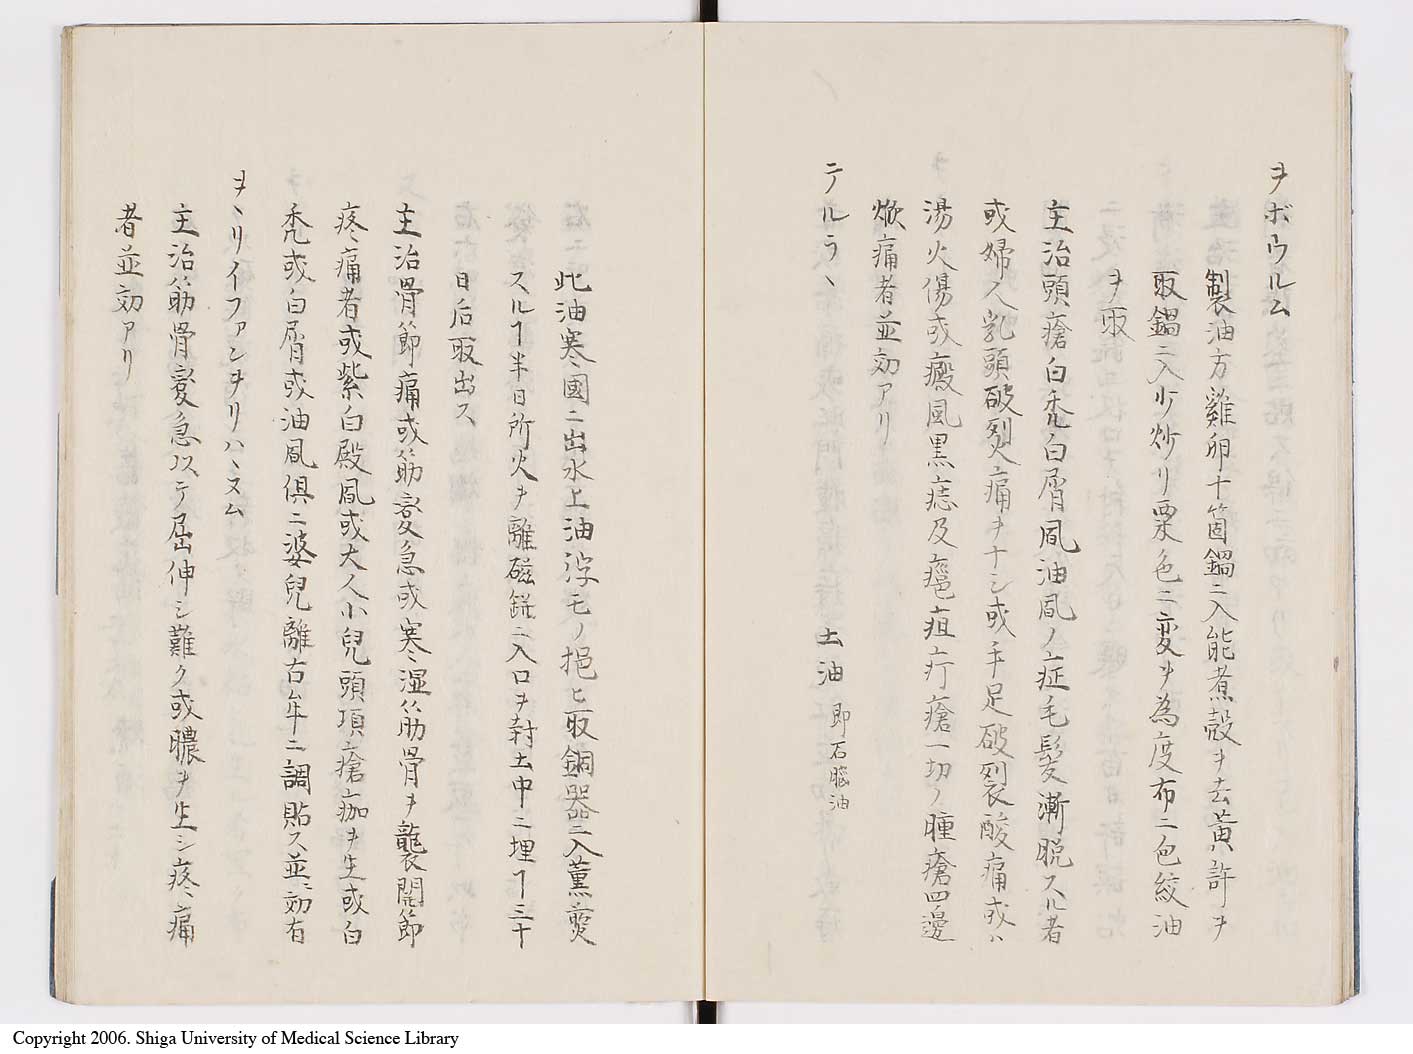 ヲボウルム
製油方雞卵十箇鍋ニ入能煮殻ヲ去黄許ヲ
取鍋ニ入少炒リ栗色ニ変ヲ為度布ニ包絞油
ヲ取
主治頭瘡白禿白屑風油風ノ症毛髪漸脱スル者
或婦人乳頭破裂痛ヲナシ或手足破裂酸痛或ハ
湯火傷或癜風黒痣及瘟疽疔瘡一切ノ腫瘡四邊
焮痛者並効アリ
テルラヽ 土油 即石脳油
此油寒國ニ出水上油浮モノ挹ヒ取銅器ニ入薫煑
スルヿ半日所火ヲ離磁鉼ニ入口ヲ封土中ニ埋ヿ三十
日后取出ス
主治骨節痛或筋攣急或寒湿筋骨ヲ襲関節
疼痛者或紫白殿風或大人小兒頭項瘡痂ヲ生或白
禿或白屑或油風倶ニ婆兒離古牟ニ調貼ス並効有
ヲヽリイフアンヲリハヽヌム
主治筋骨攣急メステ屈伸シ難ク或膿ヲ生シ疼痛
者並効アリ
Copyright 2006. Shiga University of Medical Science Library